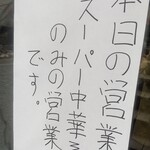 本日の営業
スーパー中華そ
のみの営業
です。